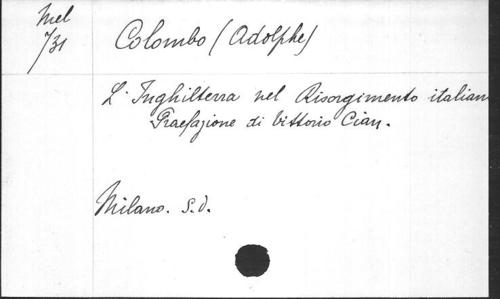 Mel
7/31
Colombo (Adolphe)
L'Inghilterra nel Risorgimento italian
Praefazione di Vittorio Cian.
Milano. s.d.